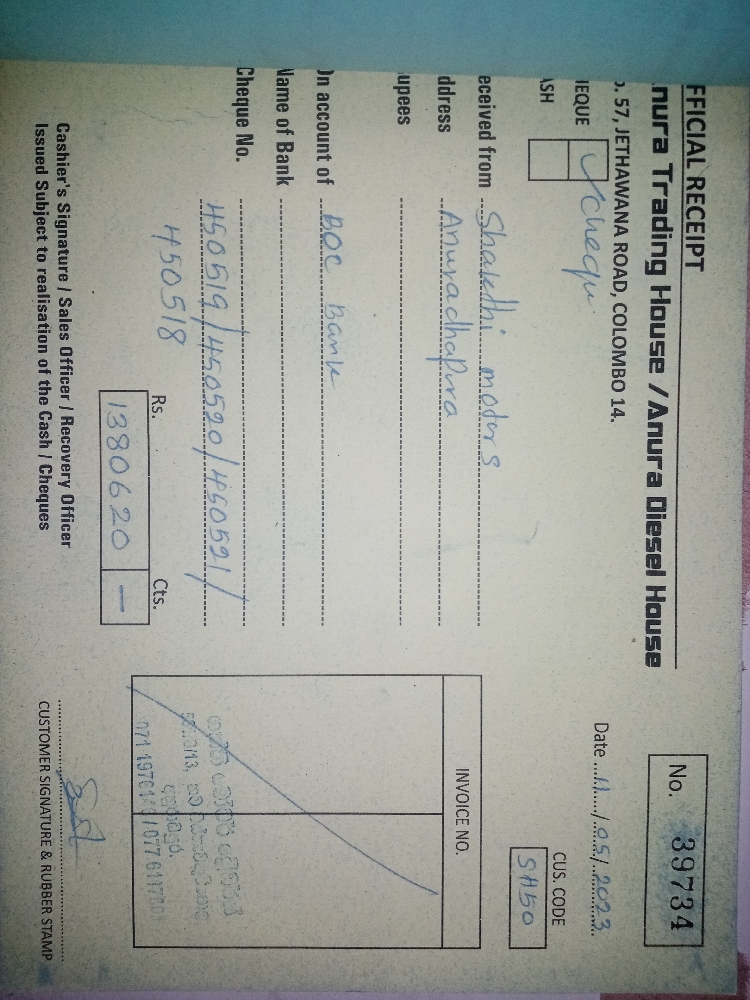 FFICIAL RECEIPT
nura Trading House / Anura Diesel House
o. 57, JETHAWANA ROAD, COLOMBO 14.
No. 39734
Date 11/05/2023
HEQUE chequ
ASH
CUS. CODE
SH50
eceived from Shakthi motors
ddress Anuradhapura
upees
On account of BOC Bank
Name of Bank
Cheque No. 450519/450520/450521/
450518
INVOICE NO.
Rs. Cts.
1380620 —
Cashier's Signature / Sales Officer / Recovery Officer
Issued Subject to realisation of the Cash / Cheques
CUSTOMER SIGNATURE & RUBBER STAMP